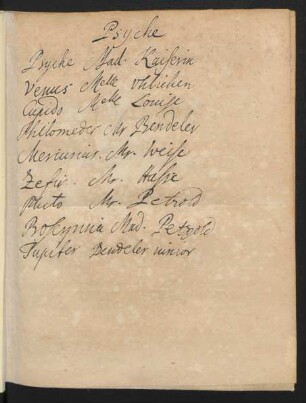 Psyche
Psyche Mad. Kaiserin
Venus Melle Uhlichen
Cupido Melle Louise
Philomedes Mr Bendeler
Mercurius. Mr. Weise
Zefir. Mr. Hasse
Pluto Mr. Petzold
Mad. Petzold
Jupiter Bendeler iunior